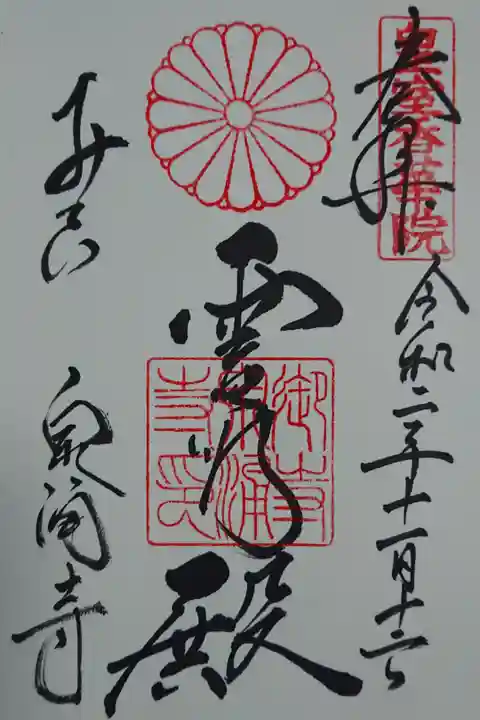 皇室香華院
奉拝
令和二年十一月十六日
霊明殿
御寺
泉涌
寺印
泉涌寺